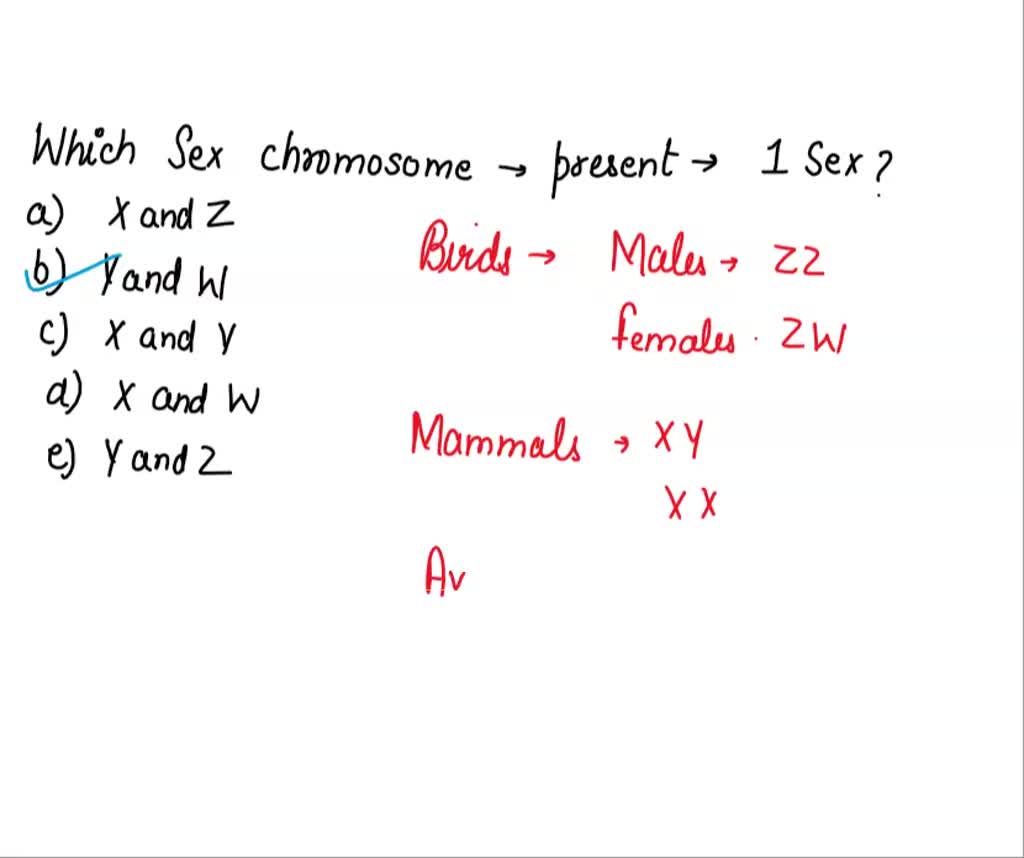 Which Sex chromosome → present → 1 Sex?
a) X and Z
b) Y and W
c) X and Y
d) X and W
e) Y and Z
Birds → Males → ZZ
females · ZW
Mammals → XY
XX
Av